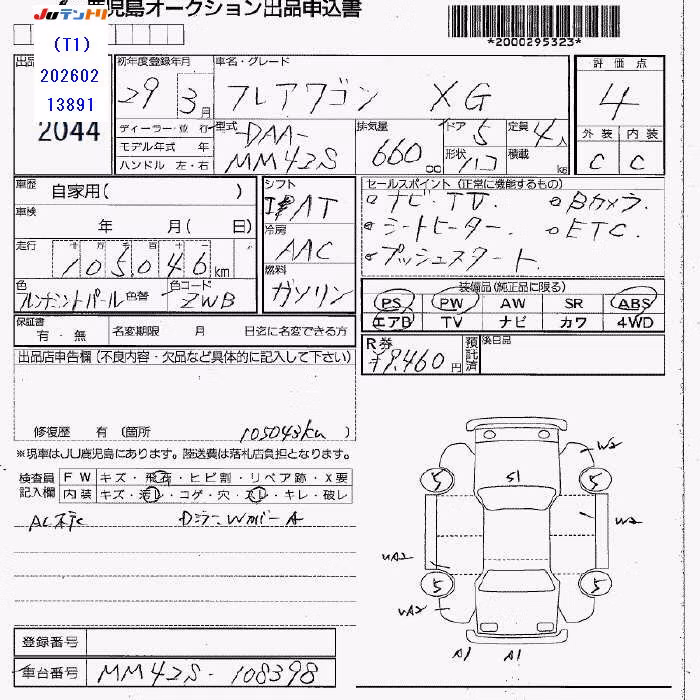 JUテントリ
鹿児島オークション出品申込書
*2000295323*
(T1)
202602
13891
2044
初年度登録年月
29 3月
車名・グレード
フレアワゴン XG
評価点
4
外装 内装
C C
ディーラー・並行
モデル年式 年
ハンドル 左・右
型式
DAA-
MM42S
排気量
660 cc
ドア 5
形状 ハコ
定員 4人
積載 kg
車歴 自家用( )
車検 年 月( 日)
走行
105046km
色
色替
色コード
ZWB
シフト
AT
冷房
AAC
燃料
ガソリン
セールスポイント(正常に機能するもの)
ナビ・TV. Bカメラ.
シートヒーター. ETC.
プッシュスタート.
装備品(純正品に限る)
PS PW AW SR ABS
エアB TV ナビ カワ 4WD
保証書
有・無
名変期限 月 日迄に名変できる方
R券
¥9,460円
預託済
後日品
出品店申告欄(不良内容・欠品など具体的に記入して下さい)
修復歴 有 (箇所 105043km )
※現車はJU鹿児島にあります。陸送費は落札店負担となります。
検査員
記入欄
FW キズ・飛石・ヒビ割・リペア跡・X要
内装 キズ・汚レ・コゲ・穴・スレ・キレ・破レ
DミラーWカバーA
S1
W2
W2
UA2
UA2
5
5
5
5
A1 A1
登録番号
車台番号 MM42S-108398